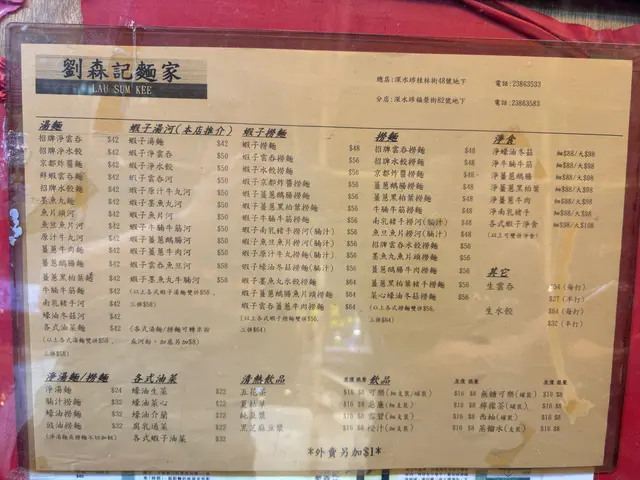 劉森記麵家
LAU SUM KEE
總店:深水埗桂林街48號地下 電話:23863533
分店:深水埗福榮街82號地下 電話:23863583
湯麵
招牌淨雲吞 $42
招牌淨水餃 $42
京都炸醬麵 $42
鮮蝦雲吞麵 $42
招牌水餃麵 $42
墨魚丸麵 $42
魚片頭河 $42
魚旦魚片河 $42
原汁牛丸河 $42
薑蔥牛肉麵 $42
薑蔥鵝腸麵 $42
薑蔥黑柏葉麵 $42
牛腩牛筋麵 $42
南乳豬手河 $42
蠔油冬菇河 $42
各式油菜麵 $42
(以上各式湯麵雙併$50,
三併$58)
蝦子湯河(本店推介)
蝦子湯麵 $42
蝦子淨雲吞 $50
蝦子淨水餃 $50
蝦子雲吞河 $50
蝦子原汁牛丸河 $50
蝦子墨魚丸河 $50
蝦子魚片河 $50
蝦子牛腩牛筋河 $50
蝦子薑蔥鵝腸河 $50
蝦子薑蔥牛肉河 $50
蝦子雲吞魚旦河 $58
蝦子墨魚丸牛腩河 $58
(以上各式蝦子湯麵雙併$58,
三併$58)
(各式湯麵/撈麵可轉米粉
蝦子撈麵
蝦子撈麵 $48
蝦子雲吞撈麵 $56
蝦子水餃撈麵 $56
蝦子京都炸醬撈麵 $56
蝦子薑蔥鵝腸撈麵 $56
蝦子薑蔥黑柏葉撈麵 $56
蝦子牛腩牛筋撈麵 $56
蝦子南乳豬手撈麵(腩汁) $56
蝦子魚旦魚片撈麵(腩汁) $56
蝦子薑蔥牛肉撈麵 $56
蝦子蠔油冬菇撈麵(腩汁) $56
蝦子墨魚丸水餃撈麵 $64
蝦子薑蔥鵝腸魚片頭撈麵 $64
蝦子雲吞薑蔥牛肉撈麵 $64
(以上各式蝦子撈麵雙併$56,
三併$64)
撈麵
招牌雲吞撈麵 $48
招牌水餃撈麵 $48
京都炸醬撈麵 $48
薑蔥鵝腸撈麵 $48
薑蔥黑柏葉撈麵 $48
牛腩牛筋撈麵 $48
南乳豬手撈河(腩汁) $48
魚旦魚片撈河(腩汁) $48
招牌雲吞水餃撈麵 $56
墨魚丸魚片撈麵 $56
薑蔥鵝腸牛肉撈麵 $56
薑蔥黑柏葉豬手撈麵 $56
菜心蠔油冬菇撈麵 $56
三併$64)
淨食
淨蠔油冬菇 細$88/大$98
淨牛腩牛筋 細$88/大$98
淨薑蔥鵝腸 細$88/大$98
淨薑蔥黑柏葉 細$88/大$98
淨薑蔥牛肉 細$88/大$98
淨南乳豬手 細$88/大$98
各式蝦子淨食 細$98/大$108
(以上可雙併淨食)
其它
生雲吞 $54 (每打)
$27 (半打)
生水餃 $64 (每打)
$32 (半打)
淨湯麵/撈麵
淨湯麵 $24
腩汁撈麵 $32
蠔油撈麵 $32
豉油撈麵 $32
各式油菜
蠔油生菜 $22
蠔油菜心 $22
蠔油介蘭 $22
腐乳通菜 $22
各式蝦子油菜 $32
清熱飲品
五花茶 $16 $8
夏枯草 $16 $8
純豆漿 $16 $8
黑芝麻豆漿 $16 $8
飲品
可樂(細支裝)(罐裝) $16 $8
忌廉(細支裝) $16 $8
雪碧(細支裝) $16 $8
橙汁(細支裝) $16 $8
無糖可樂(罐裝) $16 $8
檸檬茶(罐裝) $16 $8
西柚(罐裝) $16 $8
蒸餾水(支裝) $16 $8
*外賣另加$1*